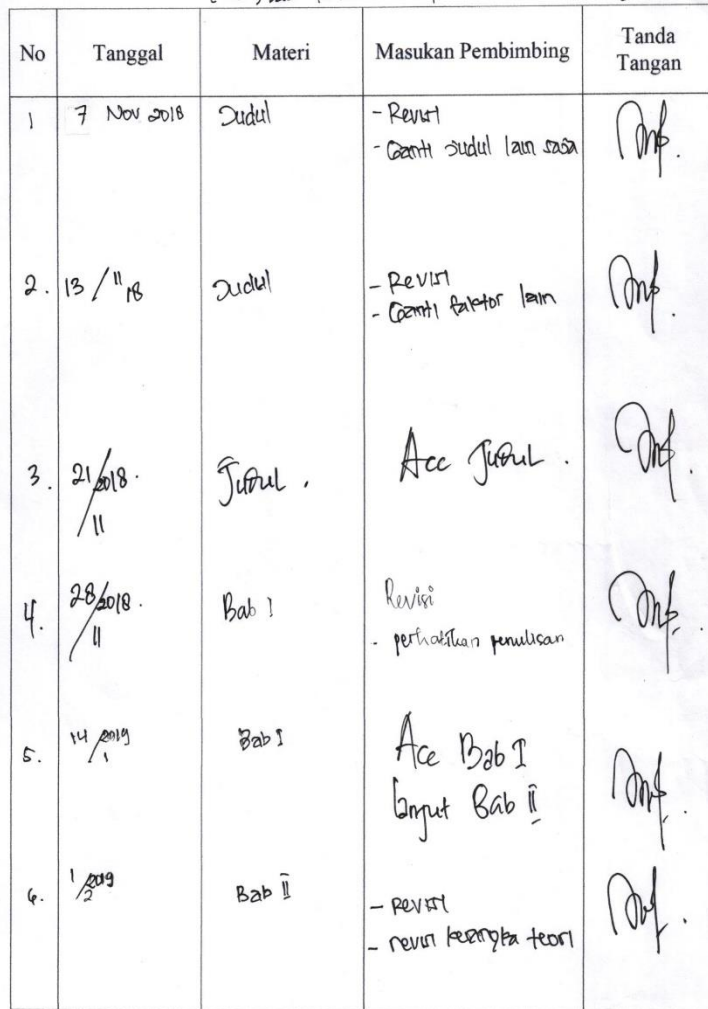 No Tanggal Materi Masukan Pembimbing Tanda Tangan
1 7 Nov 2018 Judul - Revisi
- Ganti judul lain saja
2. 13/11 18 Judul - Revisi
- Ganti faktor lain
3. 21/2018. 11 Judul. Acc Judul.
4. 28/2018. 11 Bab I Revisi
- perhatikan penulisan
5. 14/2019 1 Bab I Acc Bab I
lanjut Bab II
6. 1/2019 2 Bab II - Revisi
- revisi kerangka teori